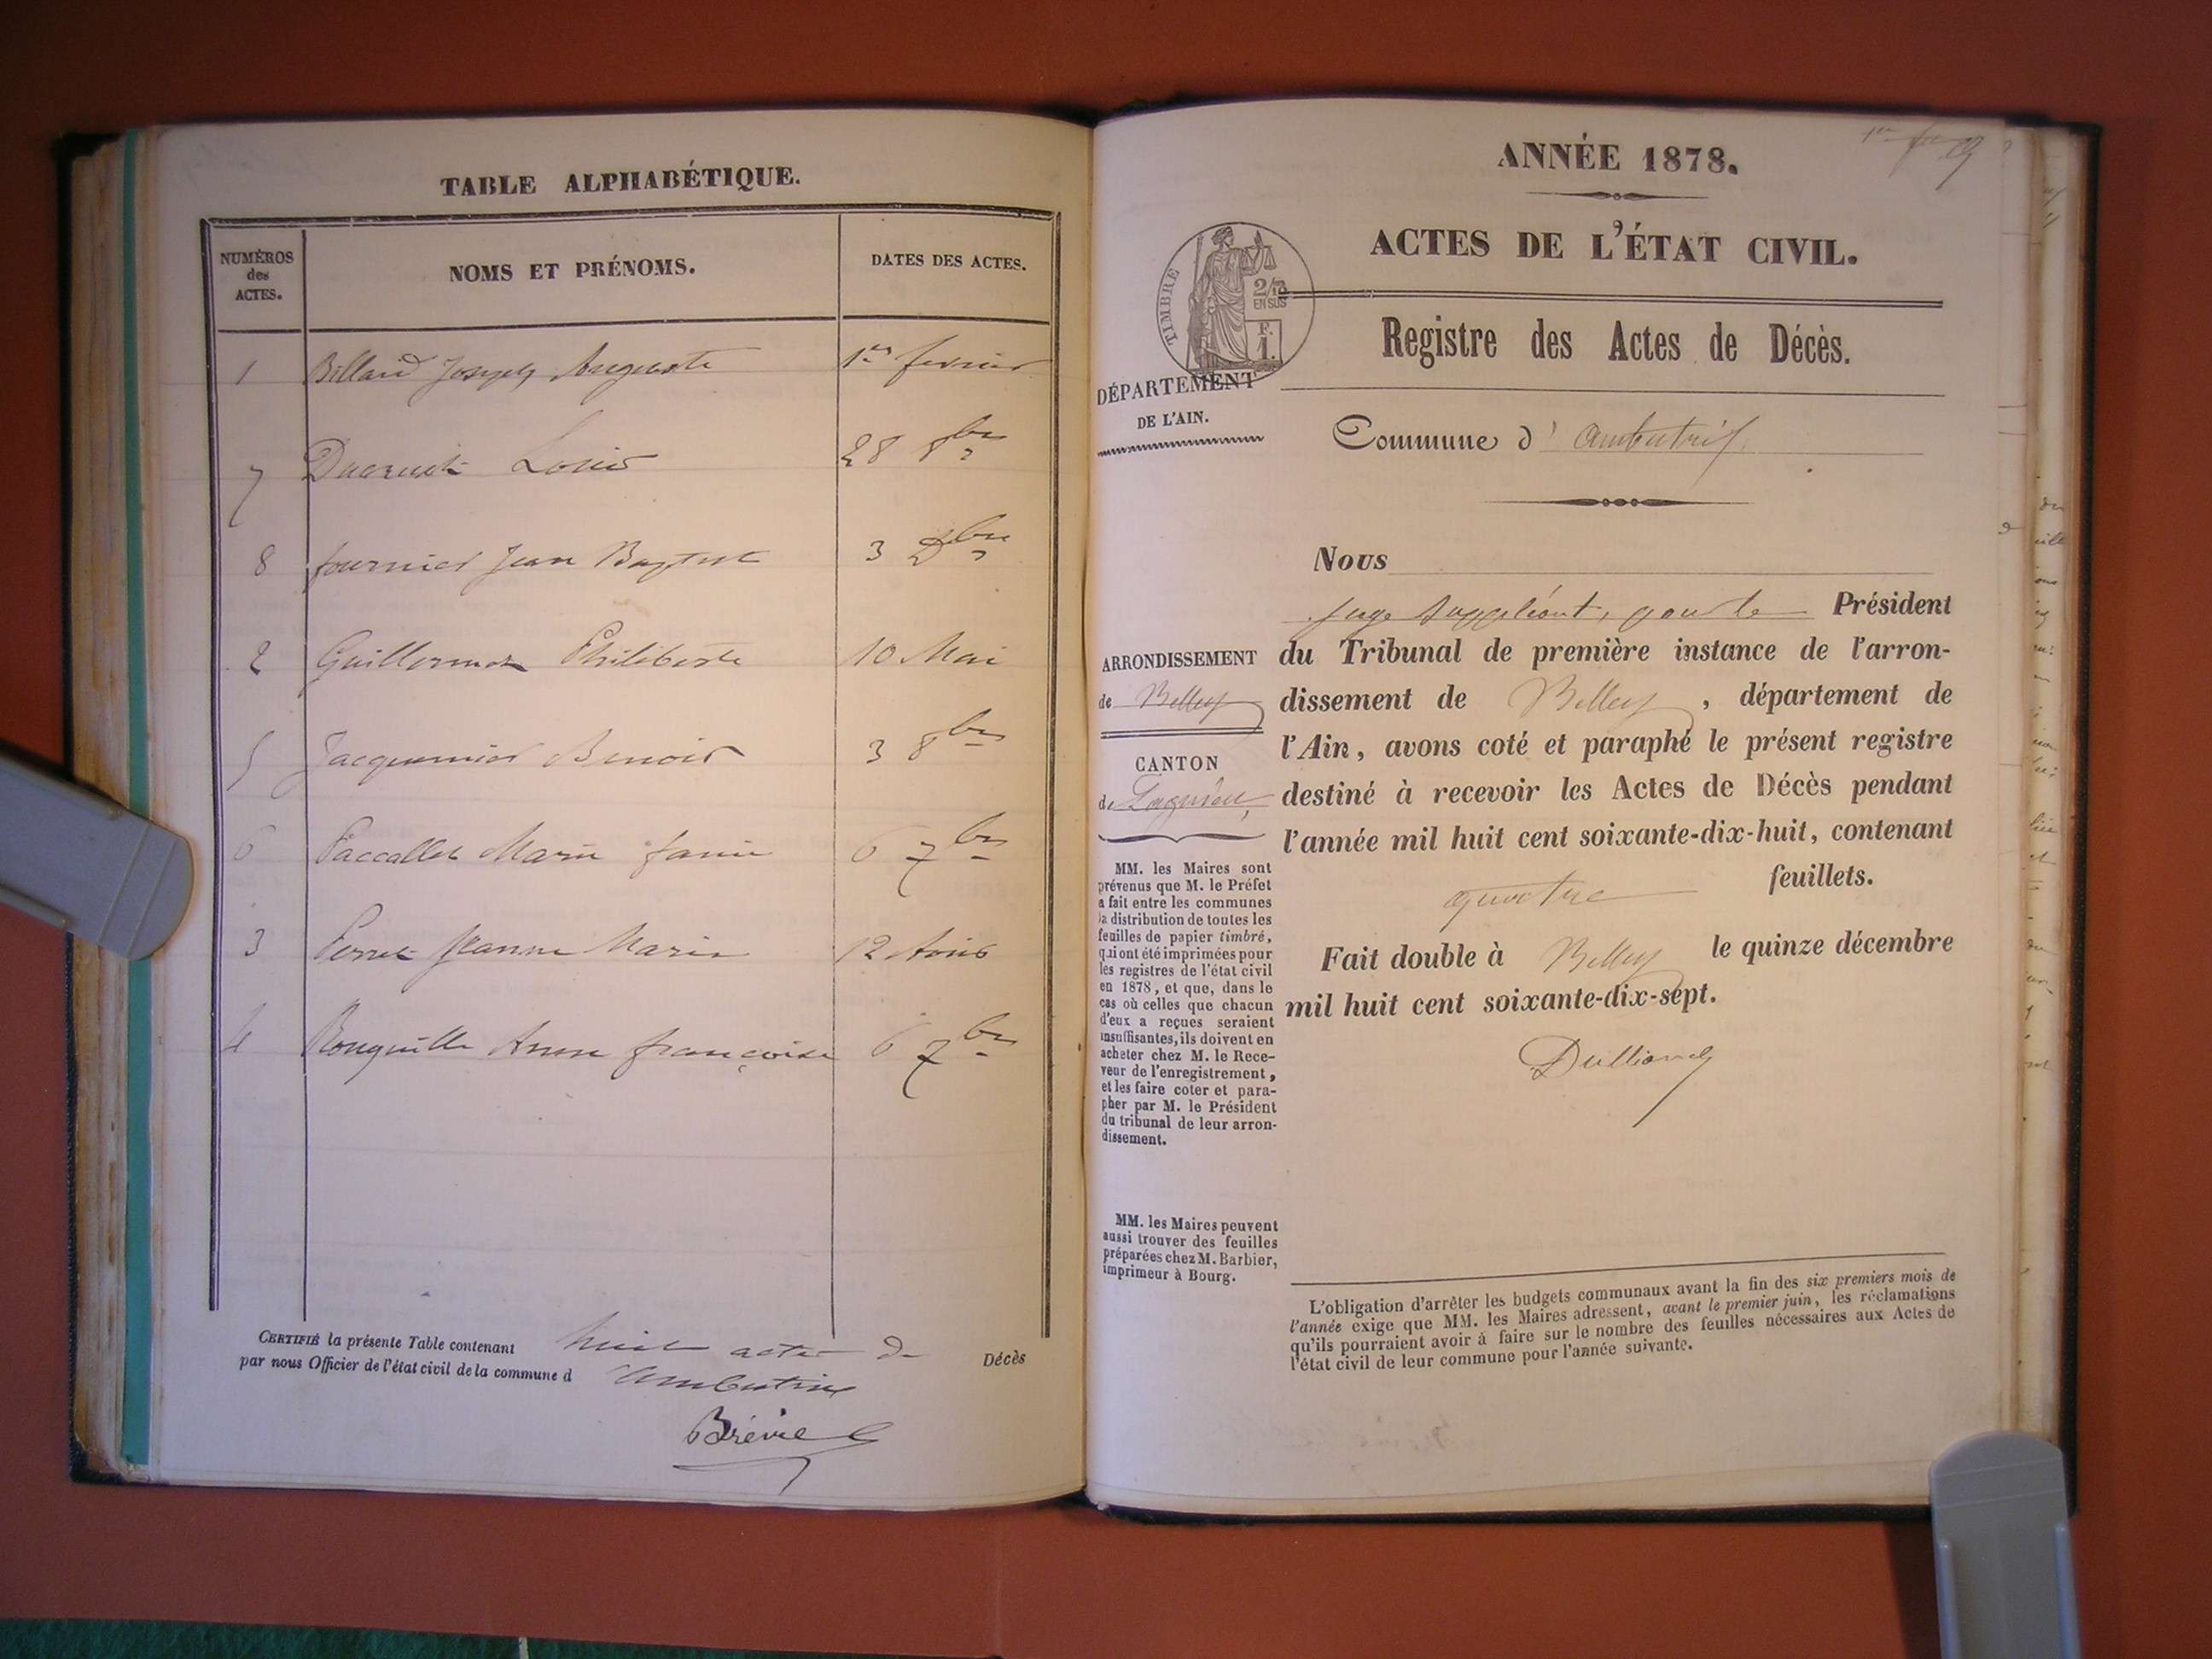 TABLE ALPHABÉTIQUE.
NUMÉROS des ACTES.
NOMS ET PRÉNOMS.
DATES DES ACTES.
1 Billard Joseph Auguste 1er fevrier
7 Ducrust Louis 28 8bre
8 fournier Jean Baptist 3 Dbre
2 Guillermoz Philiberte 10 Mai
5 Jacquemier Benoit 3 8bre
6 Paccallet Marie fanie 6 7bre
3 Perret Jeanne Marie 12 Aout
4 Rouguille Anne françoise 6 7bre
CERTIFIÉ la présente Table contenant huit actes de Décès
par nous Officier de l'état civil de la commune d Ambutrix
ANNÉE 1878.
ACTES DE L'ÉTAT CIVIL.
TIMBRE
2/10
EN SUS
F.
1.
Registre des Actes de Décès.
DÉPARTEMENT
DE L'AIN.
Commune d' Ambutrix
Nous
juge suppléant, pour le Président
du Tribunal de première instance de l'arron-
dissement de Belley, département de
l'Ain, avons coté et paraphé le présent registre
destiné à recevoir les Actes de Décès pendant
l'année mil huit cent soixante-dix-huit, contenant
quatre feuillets.
Fait double à Belley le quinze décembre
mil huit cent soixante-dix-sept.
ARRONDISSEMENT
de Belley
CANTON
de Lagnieu,
MM. les Maires sont
prévenus que M. le Préfet
a fait entre les communes
la distribution de toutes les
feuilles de papier timbré,
qui ont été imprimées pour
les registres de l'état civil
en 1878, et que, dans le
cas où celles que chacun
d'eux a reçues seraient
insuffisantes, ils doivent en
acheter chez M. le Rece-
veur de l'enregistrement,
et les faire coter et para-
pher par M. le Président
du tribunal de leur arron-
dissement.
MM. les Maires peuvent
aussi trouver des feuilles
préparées chez M. Barbier,
imprimeur à Bourg.
L'obligation d'arrêter les budgets communaux avant la fin des six premiers mois de
l'année exige que MM. les Maires adressent, avant le premier juin, les réclamations
qu'ils pourraient avoir à faire sur le nombre des feuilles nécessaires aux Actes de
l'état civil de leur commune pour l'année suivante.